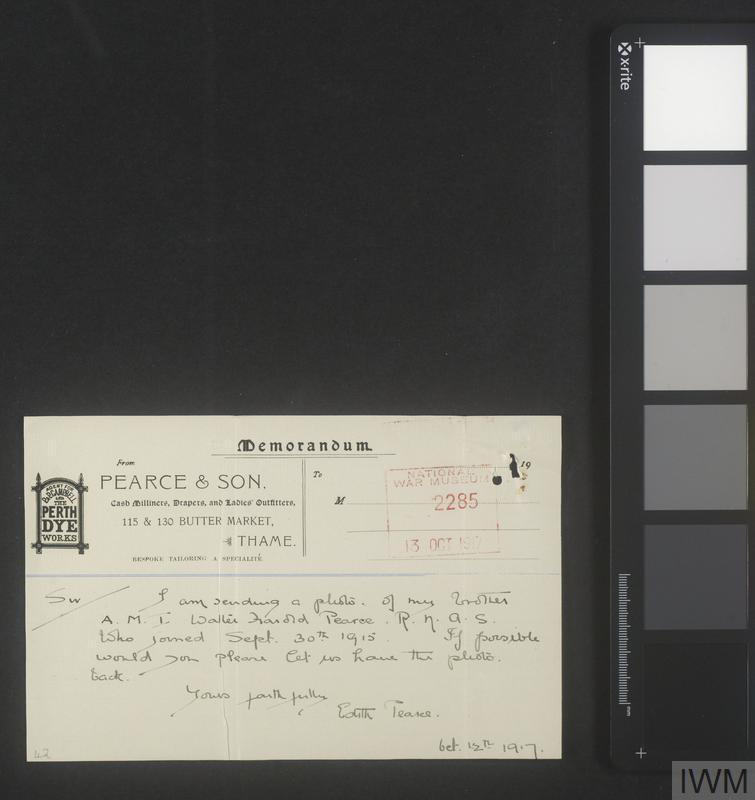 x-rite
Memorandum
From
PEARCE & SON.
Cash Milliners, Drapers, and Ladies' Outfitters,
115 & 130 BUTTER MARKET,
THAME.
BESPOKE TAILORING A SPECIALITÉ
AGENT FOR
P&P CAMPBELL
THE
PERTH
DYE
WORKS
To
M
19
NATIONAL
WAR MUSEUM
2285
13 OCT 1917
Sir
I am sending a photo. of my brother
A. M. I. Walter Harold Pearce. R. N. A. S.
Who joined Sept. 30th 1915. If possible
would you please let us have the photo.
back.
Yours faithfully
Edith Pearce.
Oct. 12th 1917.
42
mm
IWM